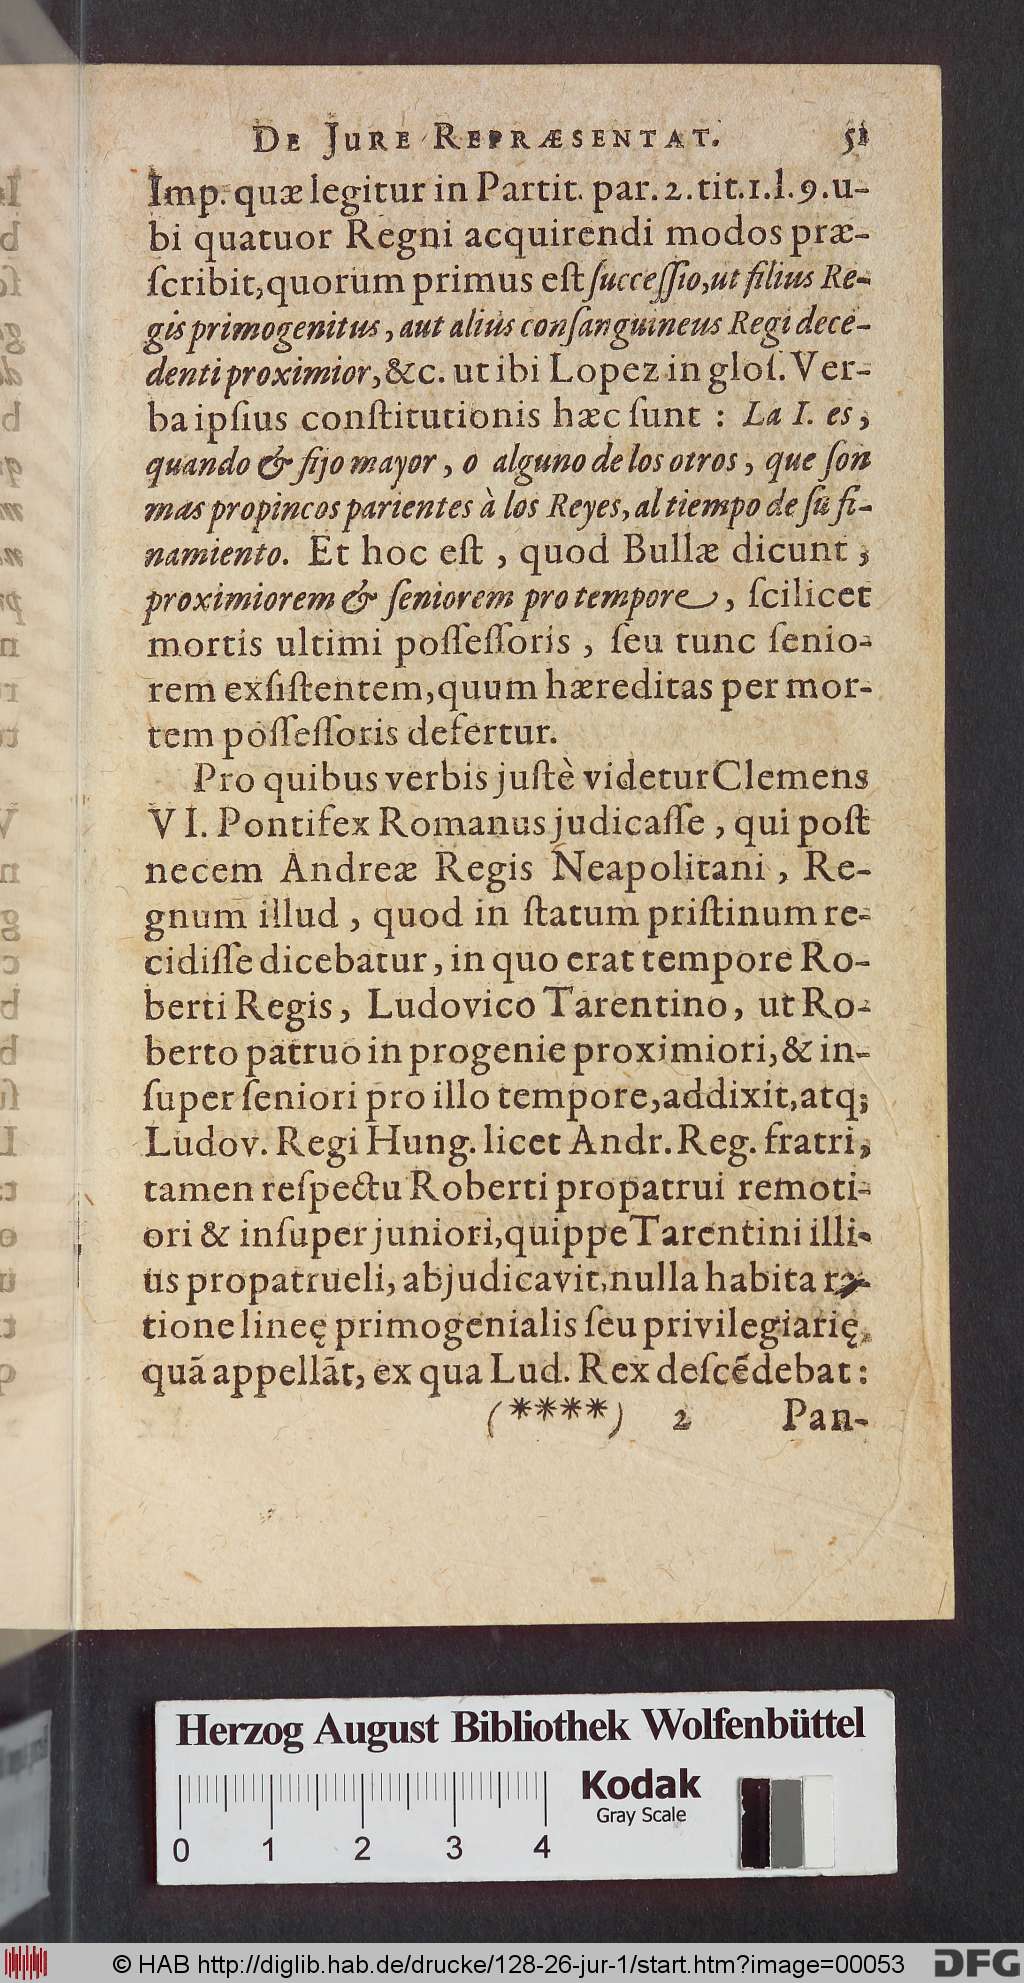 DE JURE REPRÆSENTAT. 51
Imp. quæ legitur in Partit. par. 2. tit. 1. l. 9. u-
bi quatuor Regni acquirendi modos præ-
ſcribit, quorum primus eſt ſucceſſio, ut filius Re-
gis primogenitus, aut alius conſanguineus Regi dece-
denti proximior, &c. ut ibi Lopez in gloſ. Ver-
ba ipſius conſtitutionis hæc ſunt : La I. es,
quando & fijo mayor, o alguno de los otros, que ſon
mas propincos parientes à los Reyes, al tiempo de ſu fi-
namiento. Et hoc eſt, quod Bullæ dicunt,
proximiorem & ſeniorem pro tempore, ſcilicet
mortis ultimi poſſeſſoris, ſeu tunc ſenio-
rem exſiſtentem, quum hæreditas per mor-
tem poſſeſſoris defertur.
Pro quibus verbis juſtè videtur Clemens
VI. Pontifex Romanus judicaſſe, qui poſt
necem Andreæ Regis Neapolitani, Re-
gnum illud, quod in ſtatum priſtinum re-
cidiſſe dicebatur, in quo erat tempore Ro-
berti Regis, Ludovico Tarentino, ut Ro-
berto patruo in progenie proximiori, & in-
ſuper ſeniori pro illo tempore, addixit, atq;
Ludov. Regi Hung. licet Andr. Reg. fratri,
tamen reſpectu Roberti propatrui remoti-
ori & inſuper juniori, quippe Tarentini illi-
us propatrueli, abjudicavit, nulla habita ra-
tione lineę primogenialis ſeu privilegiarię,
quã appellãt, ex qua Lud. Rex deſcẽdebat :
(****) 2 Pan-
Herzog August Bibliothek Wolfenbüttel
Kodak
Gray Scale
0 1 2 3 4
© HAB http://diglib.hab.de/drucke/128-26-jur-1/start.htm?image=00053
DFG